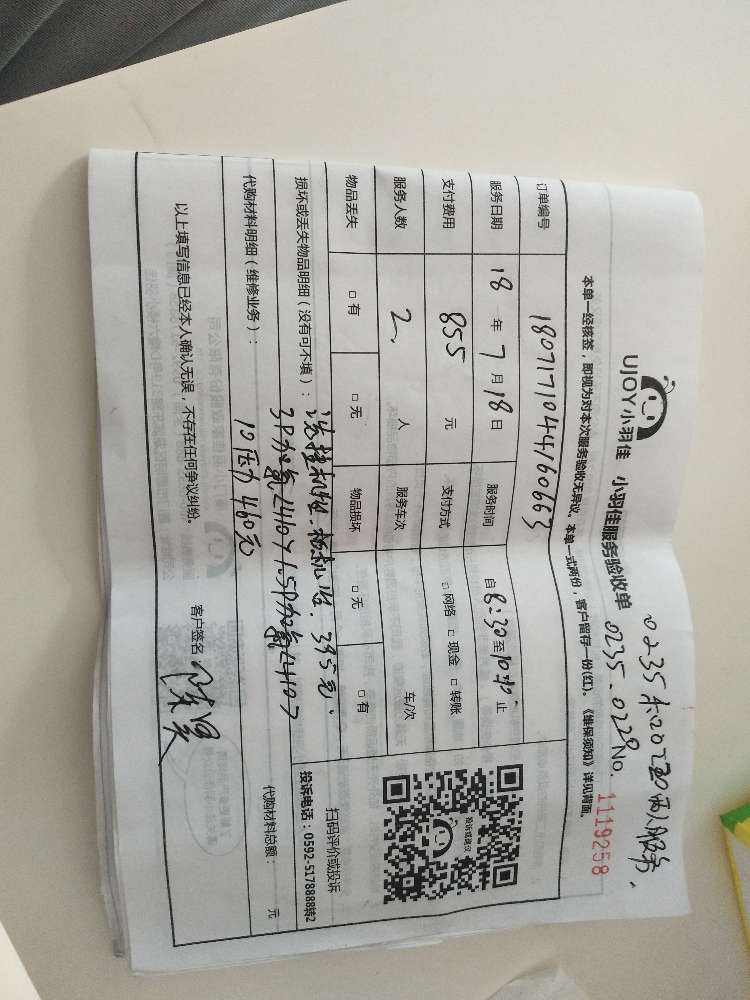 UJOY小羽佳 小羽佳服务验收单
0235 0220两人服务.
0235.0229 No. 1119258
本单一经核签，即视为对本次服务验收无异议。本单一式两份，客户留存一份(红)。《维保须知》详见背面。
订单编号 1807171044160663
服务日期 18 年 7 月 18 日 服务时间 自 8:30 至 止
支付费用 855 元 支付方式 □ 网络 □ 现金 □ 转账
服务人数 2 人 服务车次 车/次
物品丢失 □ 有 □ 无 物品损坏 □ 无 □ 有
损坏或丢失物品明细（没有可不填）： 洗挂机 柜机 395元.
3P加氟 1.5P加氟
代购材料明细（维修业务）： 10压力 460元
代购材料总额： 元
以上填写信息已经本人确认无误，不存在任何争议纠纷。
客户签名
投诉或建议
扫码评价或投诉
投诉电话：0592-5178888转2